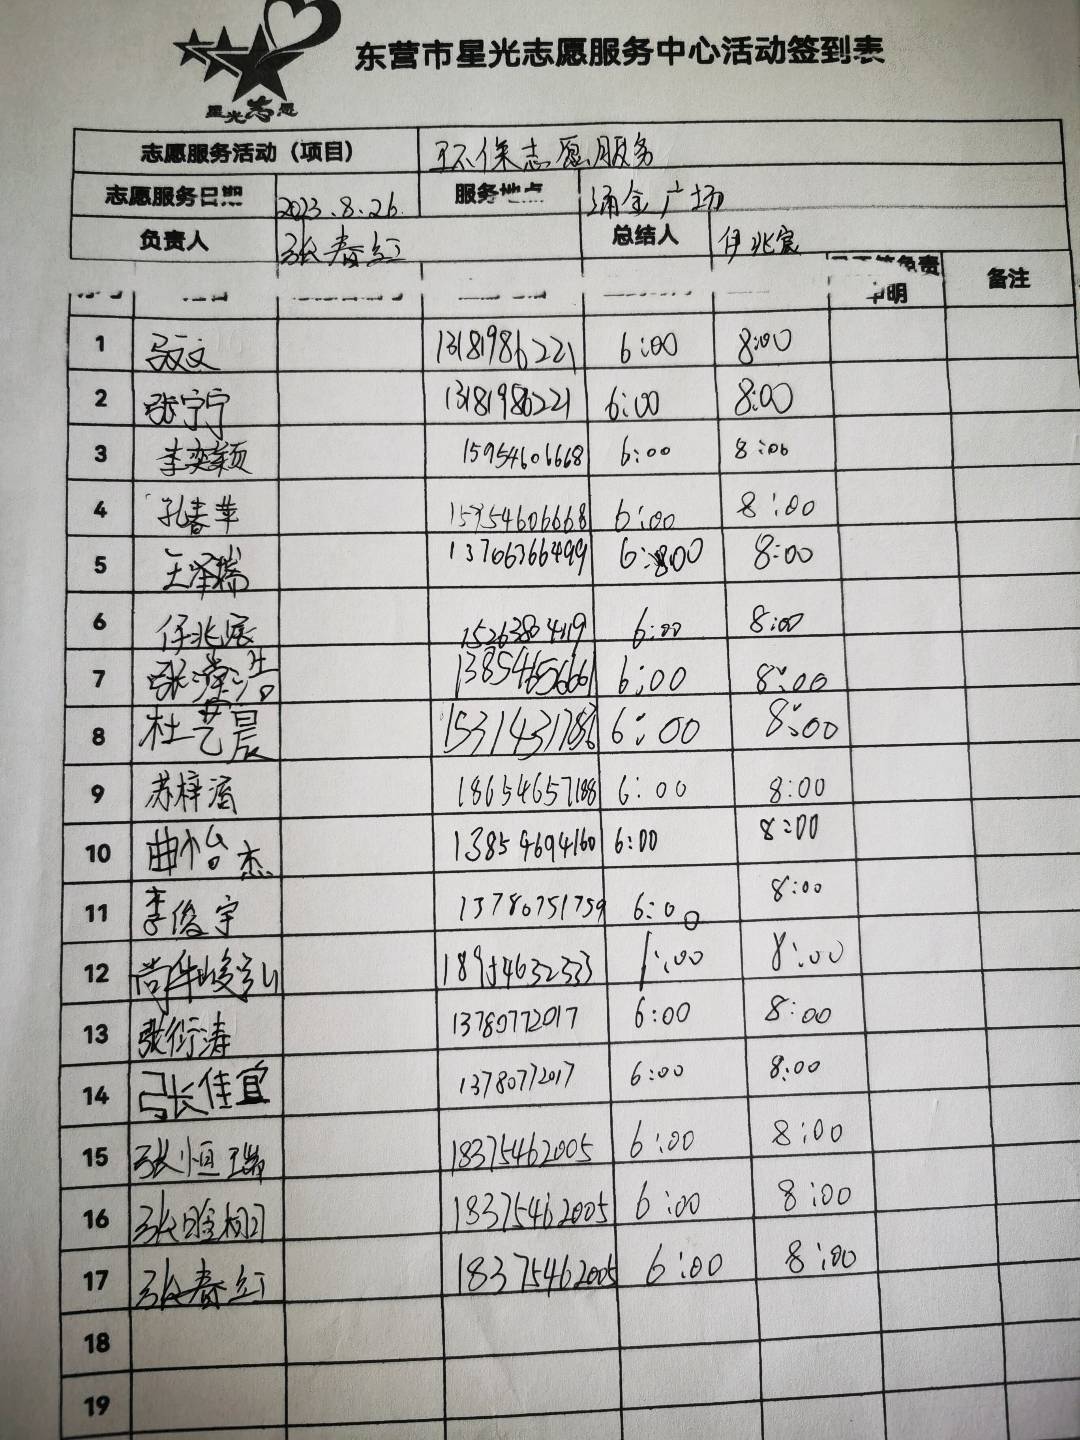 东营市星光志愿服务中心活动签到表
星光志愿
志愿服务活动（项目） 环保志愿服务
志愿服务日期 2023.8.26. 服务地点 涌金广场
负责人 张春红 总结人 伊兆宸
备注
1 13181986221 6:00 8:00
2 张宁宁 13181986221 6:00 8:00
3 李奕颖 15954606668 6:00 8:00
4 孔春苹 15954606668 6:00 8:00
5 王泽瑞 13706366499 8:00
6 伊兆宸 6:00 8:00
7 13854656661 6:00 8:00
8 杜艺晨 6:00 8:00
9 苏梓涵 18654657188 6:00 8:00
10 曲怡杰 13854694160 6:00 8:00
11 李俊宇 13780751759 6:00 8:00
12 18954632333 8:00
13 张衍涛 13780772017 6:00 8:00
14 张佳宜 13780772017 6:00 8:00
15 张恒瑞 18375462005 6:00 8:00
16 18375462005 6:00 8:00
17 张春红 18375462005 6:00 8:00
18
19